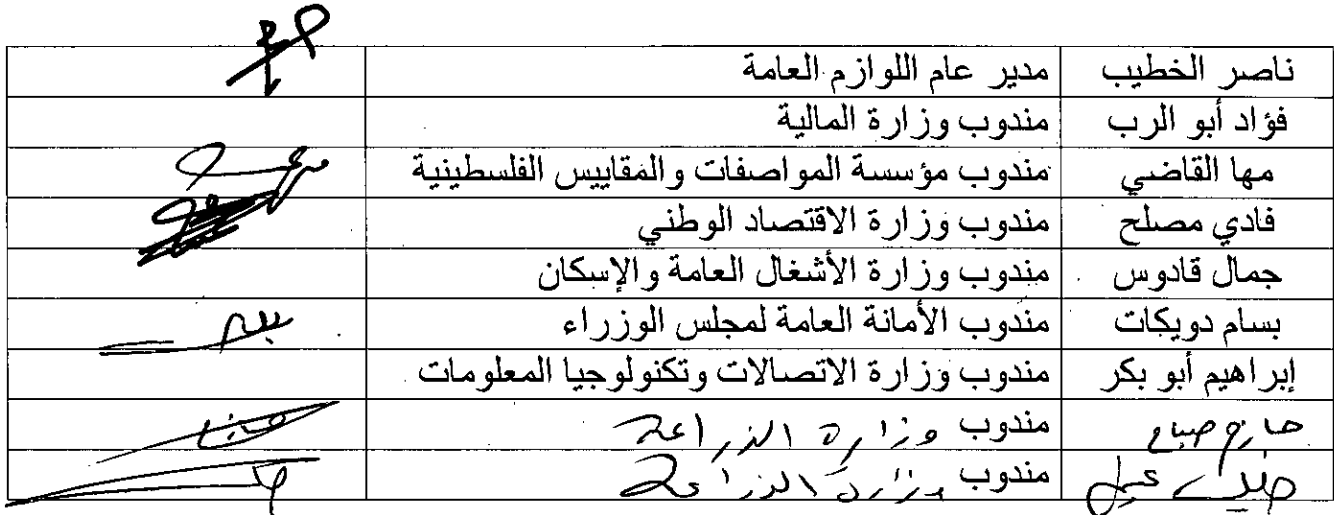 ناصر الخطيب مدير عام اللوازم العامة
فؤاد أبو الرب مندوب وزارة المالية
مها القاضي مندوب مؤسسة المواصفات والمقاييس الفلسطينية
فادي مصلح مندوب وزارة الاقتصاد الوطني
جمال قادوس مندوب وزارة الأشغال العامة والإسكان
بسام دويكات مندوب الأمانة العامة لمجلس الوزراء
إبراهيم أبو بكر مندوب وزارة الاتصالات وتكنولوجيا المعلومات
مندوب وزارة الزراعة
مندوب وزارة الزراعة